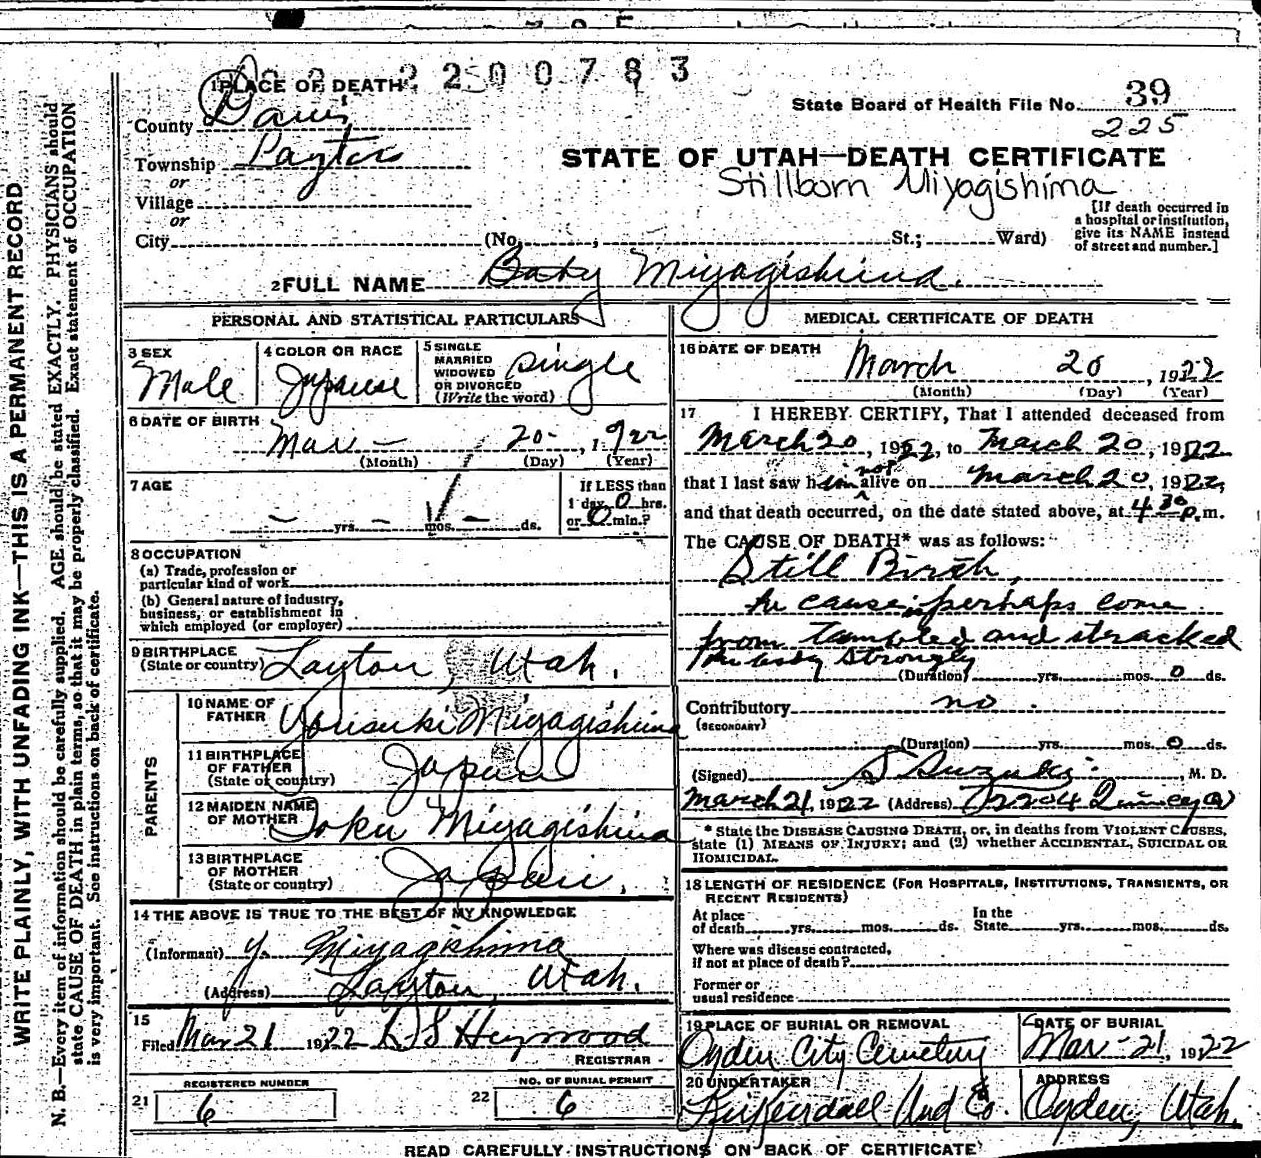 2200783
1 PLACE OF DEATH
State Board of Health File No. 39
225
County Davis
Township Layton
or
Village
or
City
STATE OF UTAH—DEATH CERTIFICATE
Stillborn Miyagishima
(No. , St.; Ward)
[If death occurred in
a hospital or institution,
give its NAME instead
of street and number.]
2 FULL NAME Baby Miyagishima.
PERSONAL AND STATISTICAL PARTICULARS
3 SEX
Male
4 COLOR OR RACE
Japanese
5 SINGLE
MARRIED
WIDOWED
OR DIVORCED
(Write the word)
Single
6 DATE OF BIRTH
Mar — 20 - , 1922
(Month) (Day) (Year)
7 AGE
— yrs. — mos. — ds.
If LESS than
1 day 0 hrs.
or 0 min.?
8 OCCUPATION
(a) Trade, profession or
particular kind of work
(b) General nature of industry,
business, or establishment in
which employed (or employer)
9 BIRTHPLACE
(State or country) Layton, Utah.
PARENTS
10 NAME OF
FATHER Miyagishima
11 BIRTHPLACE
OF FATHER
(State or country) Japan
12 MAIDEN NAME
OF MOTHER Toku Miyagishima
13 BIRTHPLACE
OF MOTHER
(State or country) Japan.
14 THE ABOVE IS TRUE TO THE BEST OF MY KNOWLEDGE
(Informant) Y. Miyagishima
(Address) Layton, Utah.
15
Filed Mar 21 1922 Heywood
REGISTRAR
REGISTERED NUMBER
21 6
NO. OF BURIAL PERMIT
22 6
MEDICAL CERTIFICATE OF DEATH
16 DATE OF DEATH
March 20, 1922
(Month) (Day) (Year)
17 I HEREBY CERTIFY, That I attended deceased from
March 20, 1922, to March 20, 1922
that I last saw him not alive on March 20, 1922,
and that death occurred, on the date stated above, at 4 30 p.m.
The CAUSE OF DEATH* was as follows:
Still Birth,
cause is perhaps come
from tumbled and stracked
strongly
(Duration) yrs. mos. 0 ds.
Contributory no.
(SECONDARY)
(Duration) yrs. mos. 0 ds.
(Signed) S Suzuki, M. D.
March 21, 1922 (Address)
* State the DISEASE CAUSING DEATH, or, in deaths from VIOLENT CAUSES,
state (1) MEANS OF INJURY; and (2) whether ACCIDENTAL, SUICIDAL OR
HOMICIDAL.
18 LENGTH OF RESIDENCE (FOR HOSPITALS, INSTITUTIONS, TRANSIENTS, OR
RECENT RESIDENTS)
At place
of death yrs. mos. ds.
In the
State yrs. mos. ds.
Where was disease contracted,
if not at place of death?
Former or
usual residence
19 PLACE OF BURIAL OR REMOVAL
Ogden City Cemetery
DATE OF BURIAL
Mar - 21, 1922
20 UNDERTAKER
Kirkendall And Co.
ADDRESS
Ogden, Utah.
READ CAREFULLY INSTRUCTIONS ON BACK OF CERTIFICATE
WRITE PLAINLY, WITH UNFADING INK—THIS IS A PERMANENT RECORD
N. B.—Every item of information should be carefully supplied. AGE should be stated EXACTLY. PHYSICIANS should
state CAUSE OF DEATH in plain terms, so that it may be properly classified. Exact statement of OCCUPATION
is very important. See instructions on back of certificate.